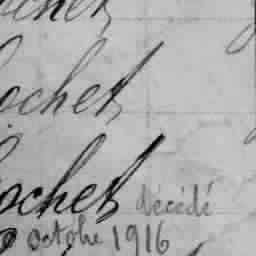 ochet
ochet
ochet décédé
octobre 1916